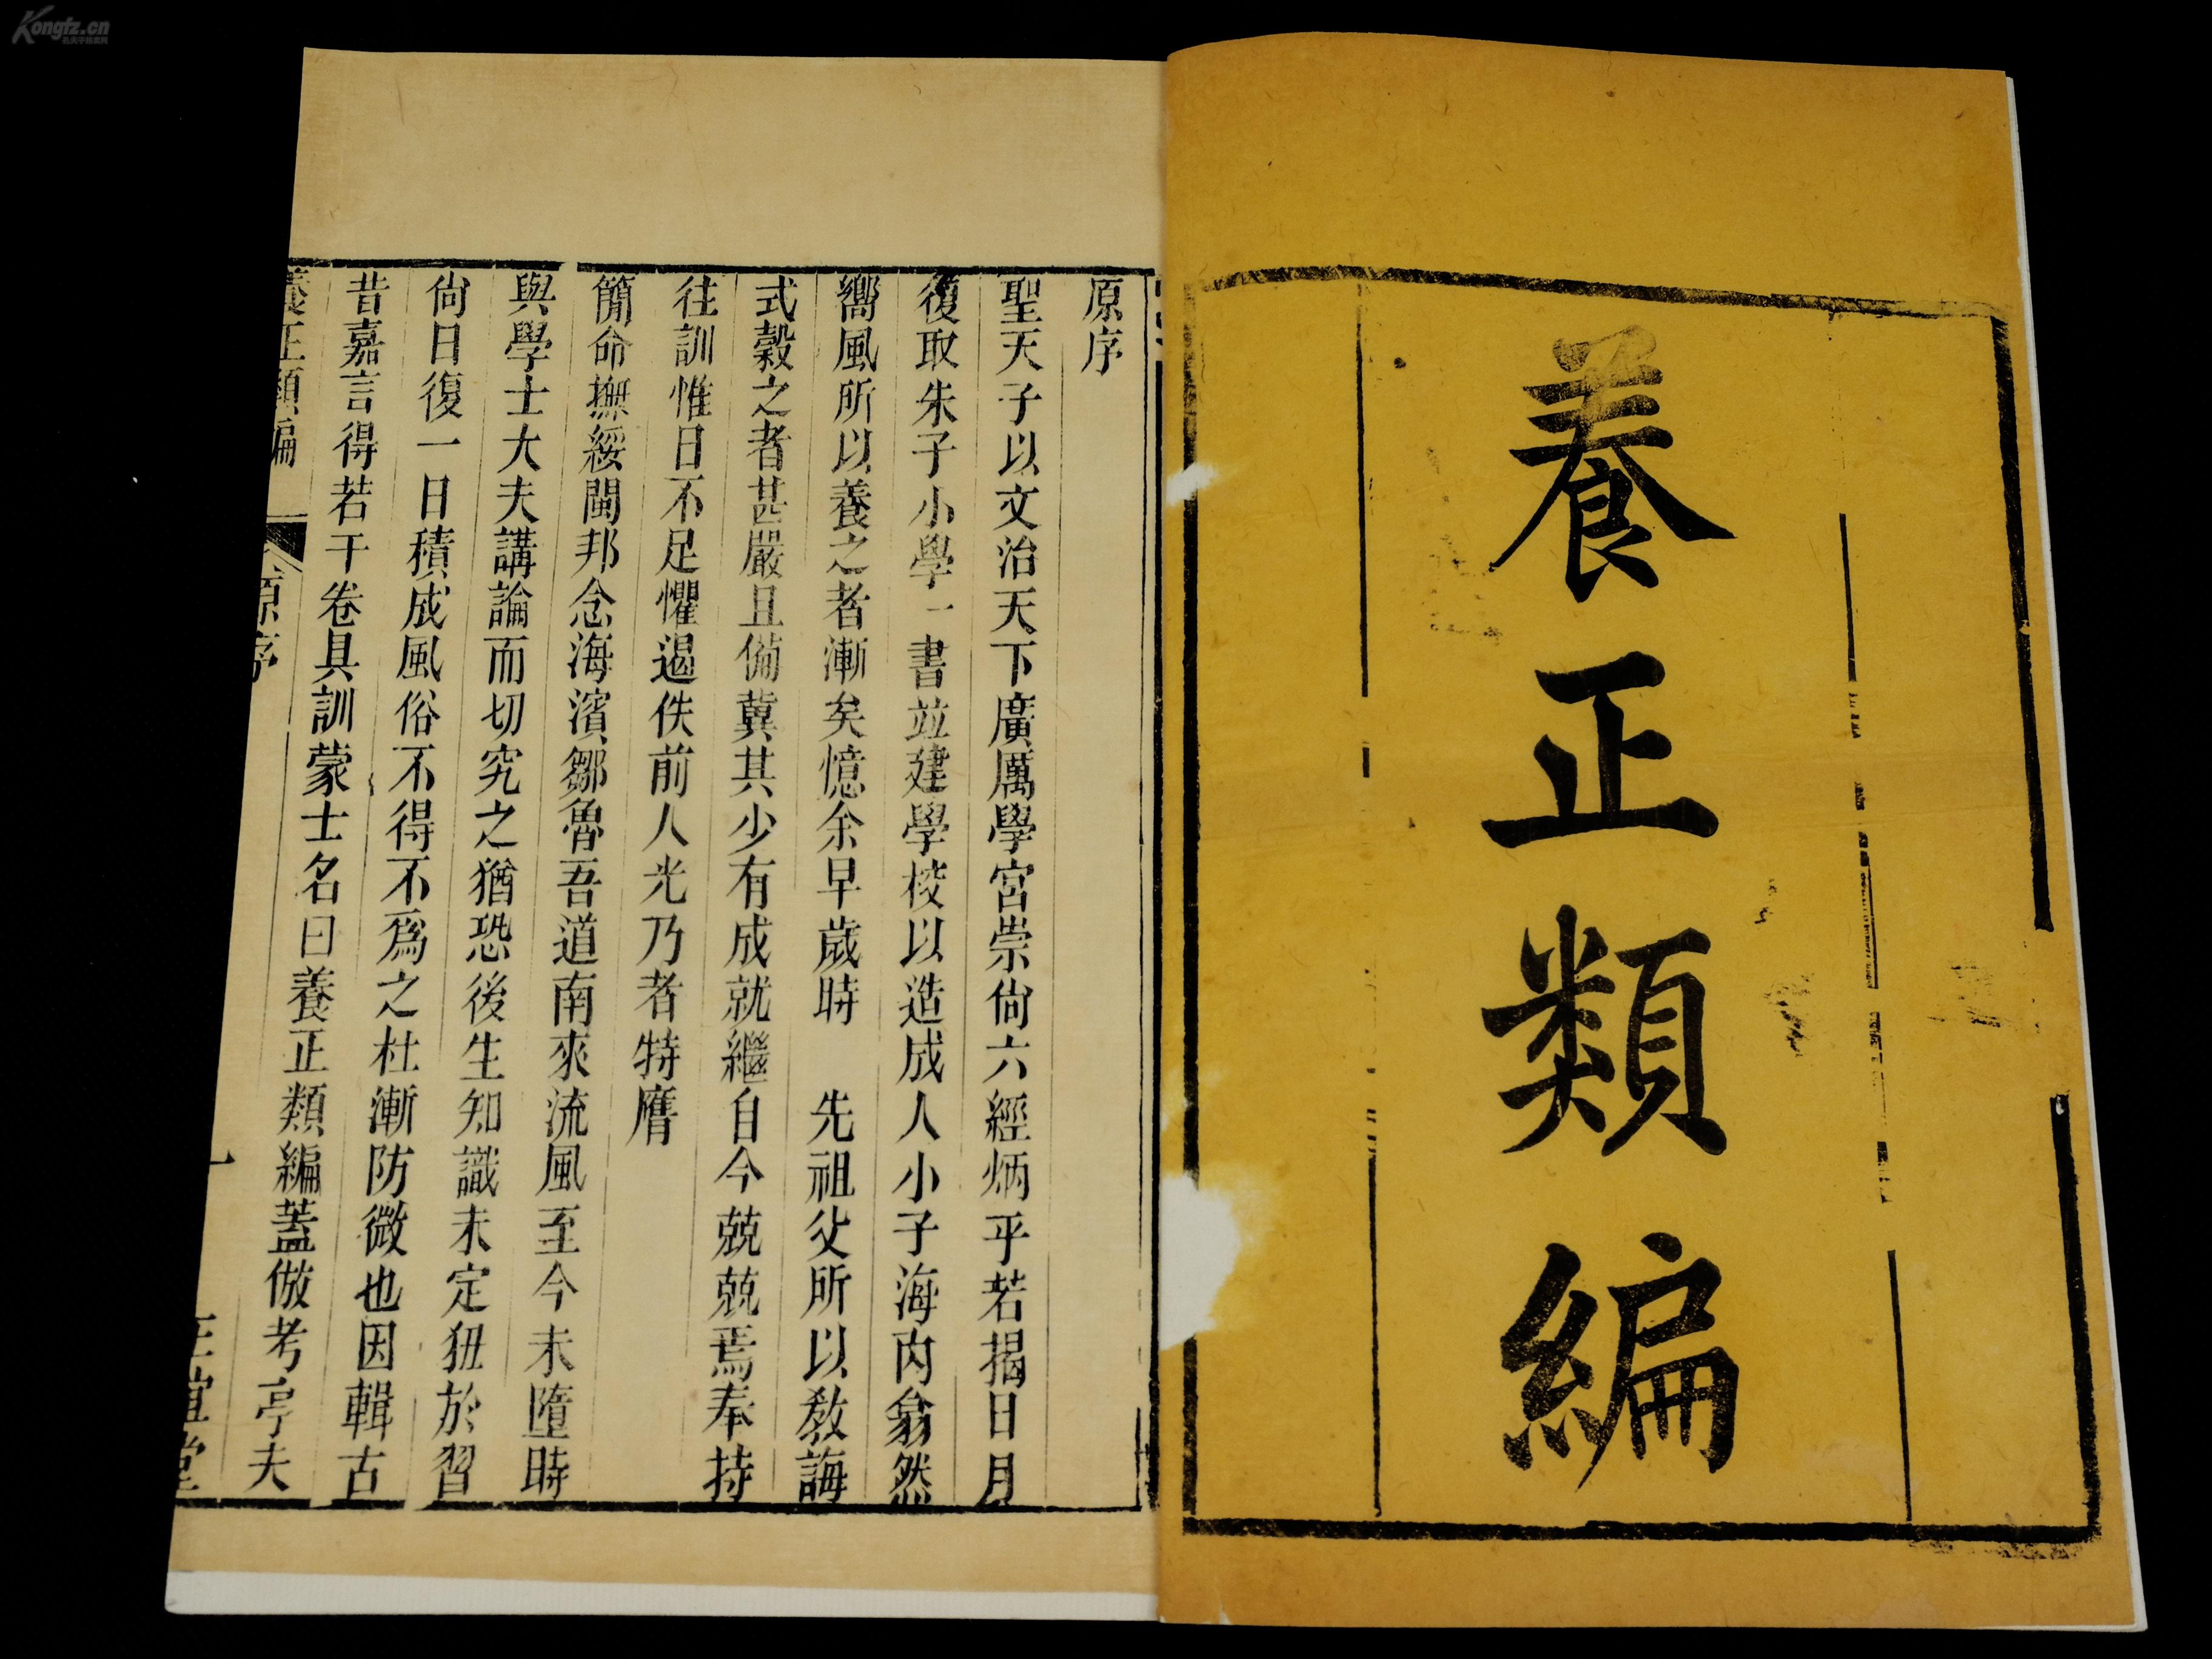 Kongfz.cn
孔夫子旧书网
養正類編
原序
聖天子以文治天下廣厲學宮崇尙六經炳乎若揭日月
復取朱子小學一書並建學校以造成人小子海內翕然
嚮風所以養之者漸矣憶余早歲時　先祖父所以敎誨
式穀之者甚嚴且備冀其少有成就繼自今兢兢焉奉持
往訓惟日不足懼遏佚前人光乃者特膺
簡命撫綏閩邦念海濱鄒魯吾道南來流風至今未墮時
與學士大夫講論而切究之猶恐後生知識未定狃於習
尙日復一日積成風俗不得不爲之杜漸防微也因輯古
昔嘉言得若干卷具訓蒙士名曰養正類編蓋倣考亭夫
養正類編　原序　一　正誼堂